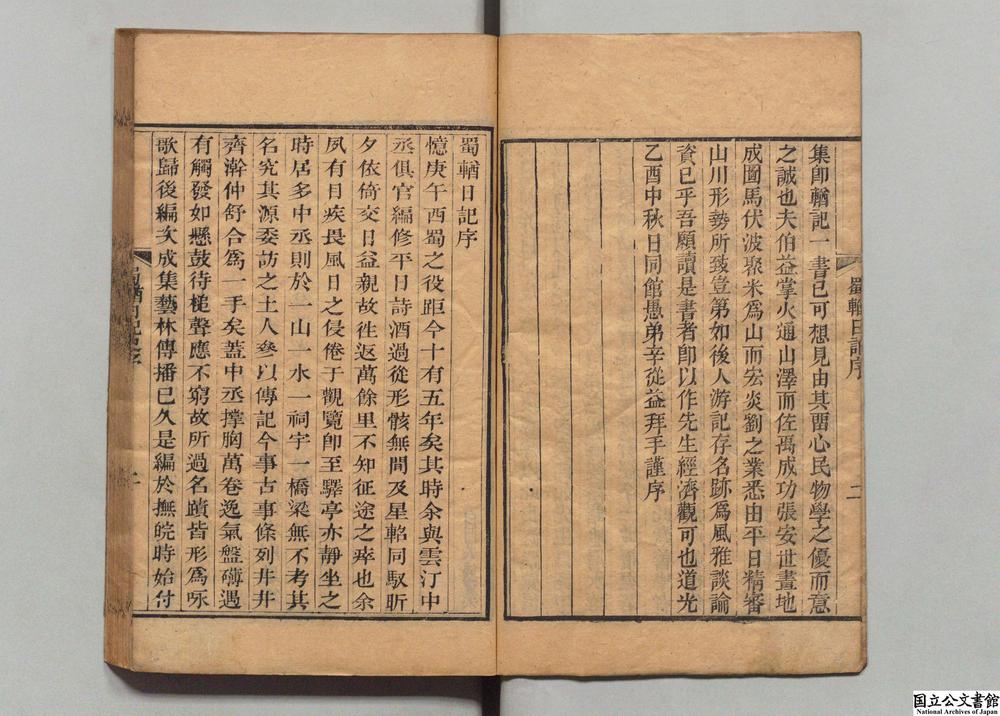 集卽輶記一書已可想見由其畱心民物學之優而意
之誠也夫伯益掌火通山澤而佐禹成功張安世畫地
成圖馬伏波聚米爲山而宏炎劉之業悉由平日精審
山川形勢所致豈第如後人游記存名跡爲風雅談論
資已乎吾願讀是書者卽以作先生經濟觀可也道光
乙酉中秋日同館愚弟辛從益拜手謹序
蜀輶日記序
二
蜀輶日記序
憶庚午西蜀之役距今十有五年矣其時余與雲汀中
丞俱官編修平日詩酒過從形骸無間及星軺同馭昕
夕依倚交日益親故徃返萬餘里不知征途之瘁也余
夙有目疾畏風日之侵倦于觀覽卽至驛亭亦靜坐之
時居多中丞則於一山一水一祠宇一橋梁無不考其
名究其源委訪之土人參以傳記今事古事條列井井
齊澣仲舒合爲一手矣蓋中丞撐胸萬卷逸氣盤礴遇
有觸發如懸鼓待槌聲應不窮故所過名蹟皆形爲咏
歌歸後編次成集藝林傳播已久是編於撫皖時始付
蜀輶日記序
国立公文書館
National Archives of Japan